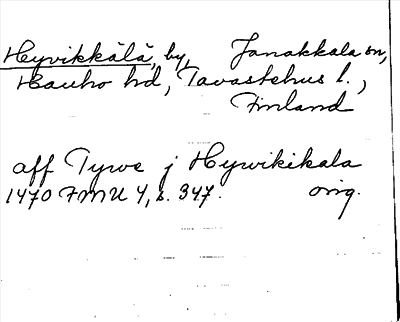 Hyvikkälä, by, Janakkala sn,
Hauho hd, Tavastehus l.,
Finland
aff Tyrve j Hyrvikikala
1470 FMU 4, s. 347. orig.